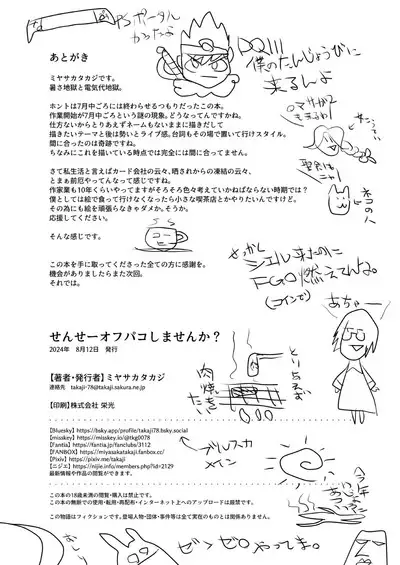 PSポータル
かったよ
DQⅢ
僕のたんじょうびに
来るんよ
あとがき
ミヤサカタカジです。
暑さ地獄と電気代地獄。
ホントは7月中ごろには終わらせるつもりだったこの本。
作業開始が7月中ごろという謎の現象。どうなってんですかね。
仕方ないからとりあえずネームもないままに描きだして
描きたいテーマと後は勢いとライブ感。台詞もその場で置いて行けスタイル。
間に合ったのは奇跡ですね。
ちなみにこれを描いている時点では完全には間に合ってません。
さて私生活と言えばカード会社の云々、晒されからの凍結の云々。
とまぁ厄年やってんなって感じですね。
作家業も10年くらいやってますがそろそろ色々考えていかねばならない時期では？
僕としては絵で食って行けなくなったら小さな喫茶店とかやりたいんですけど。
その為にも絵を頑張らなきゃダメか。そうか。
応援してください。
そんな感じです。
この本を手に取ってくださった全ての方に感謝を。
機会がありましたらまた次回。
それでは。
ロマサガ2
ネコの人
せっかく
シエル来たのに
FGO燃えてんね。
(コインで)
あちゃー
せんせーオフパコしませんか？
2024年　8月12日　発行
【著者・発行者】ミヤサカタカジ
連絡先　takaji-78@takaji.sakura.ne.jp
【印刷】株式会社 栄光
肉焼きたい
【Bluesky】https://bsky.app/profile/takaji78.bsky.social
【misskey】https://misskey.io/@tkg0078
【Fantia】https://fantia.jp/fanclubs/3112
【FANBOX】https://miyasakatakaji.fanbox.cc/
【Pixiv】https://pixiv.me/takaji
【ニジエ】https://nijie.info/members.php?id=2129
最新情報や作品の閲覧ができます。
この本の18歳未満の閲覧・購入は禁止です。
この本の無断での使用・転用・再配布・インターネット上へのアップロードは厳禁です。
この物語はフィクションです。登場人物・団体・事件等は全て実在のものとは関係ありません。
ゼンゼロやってま。